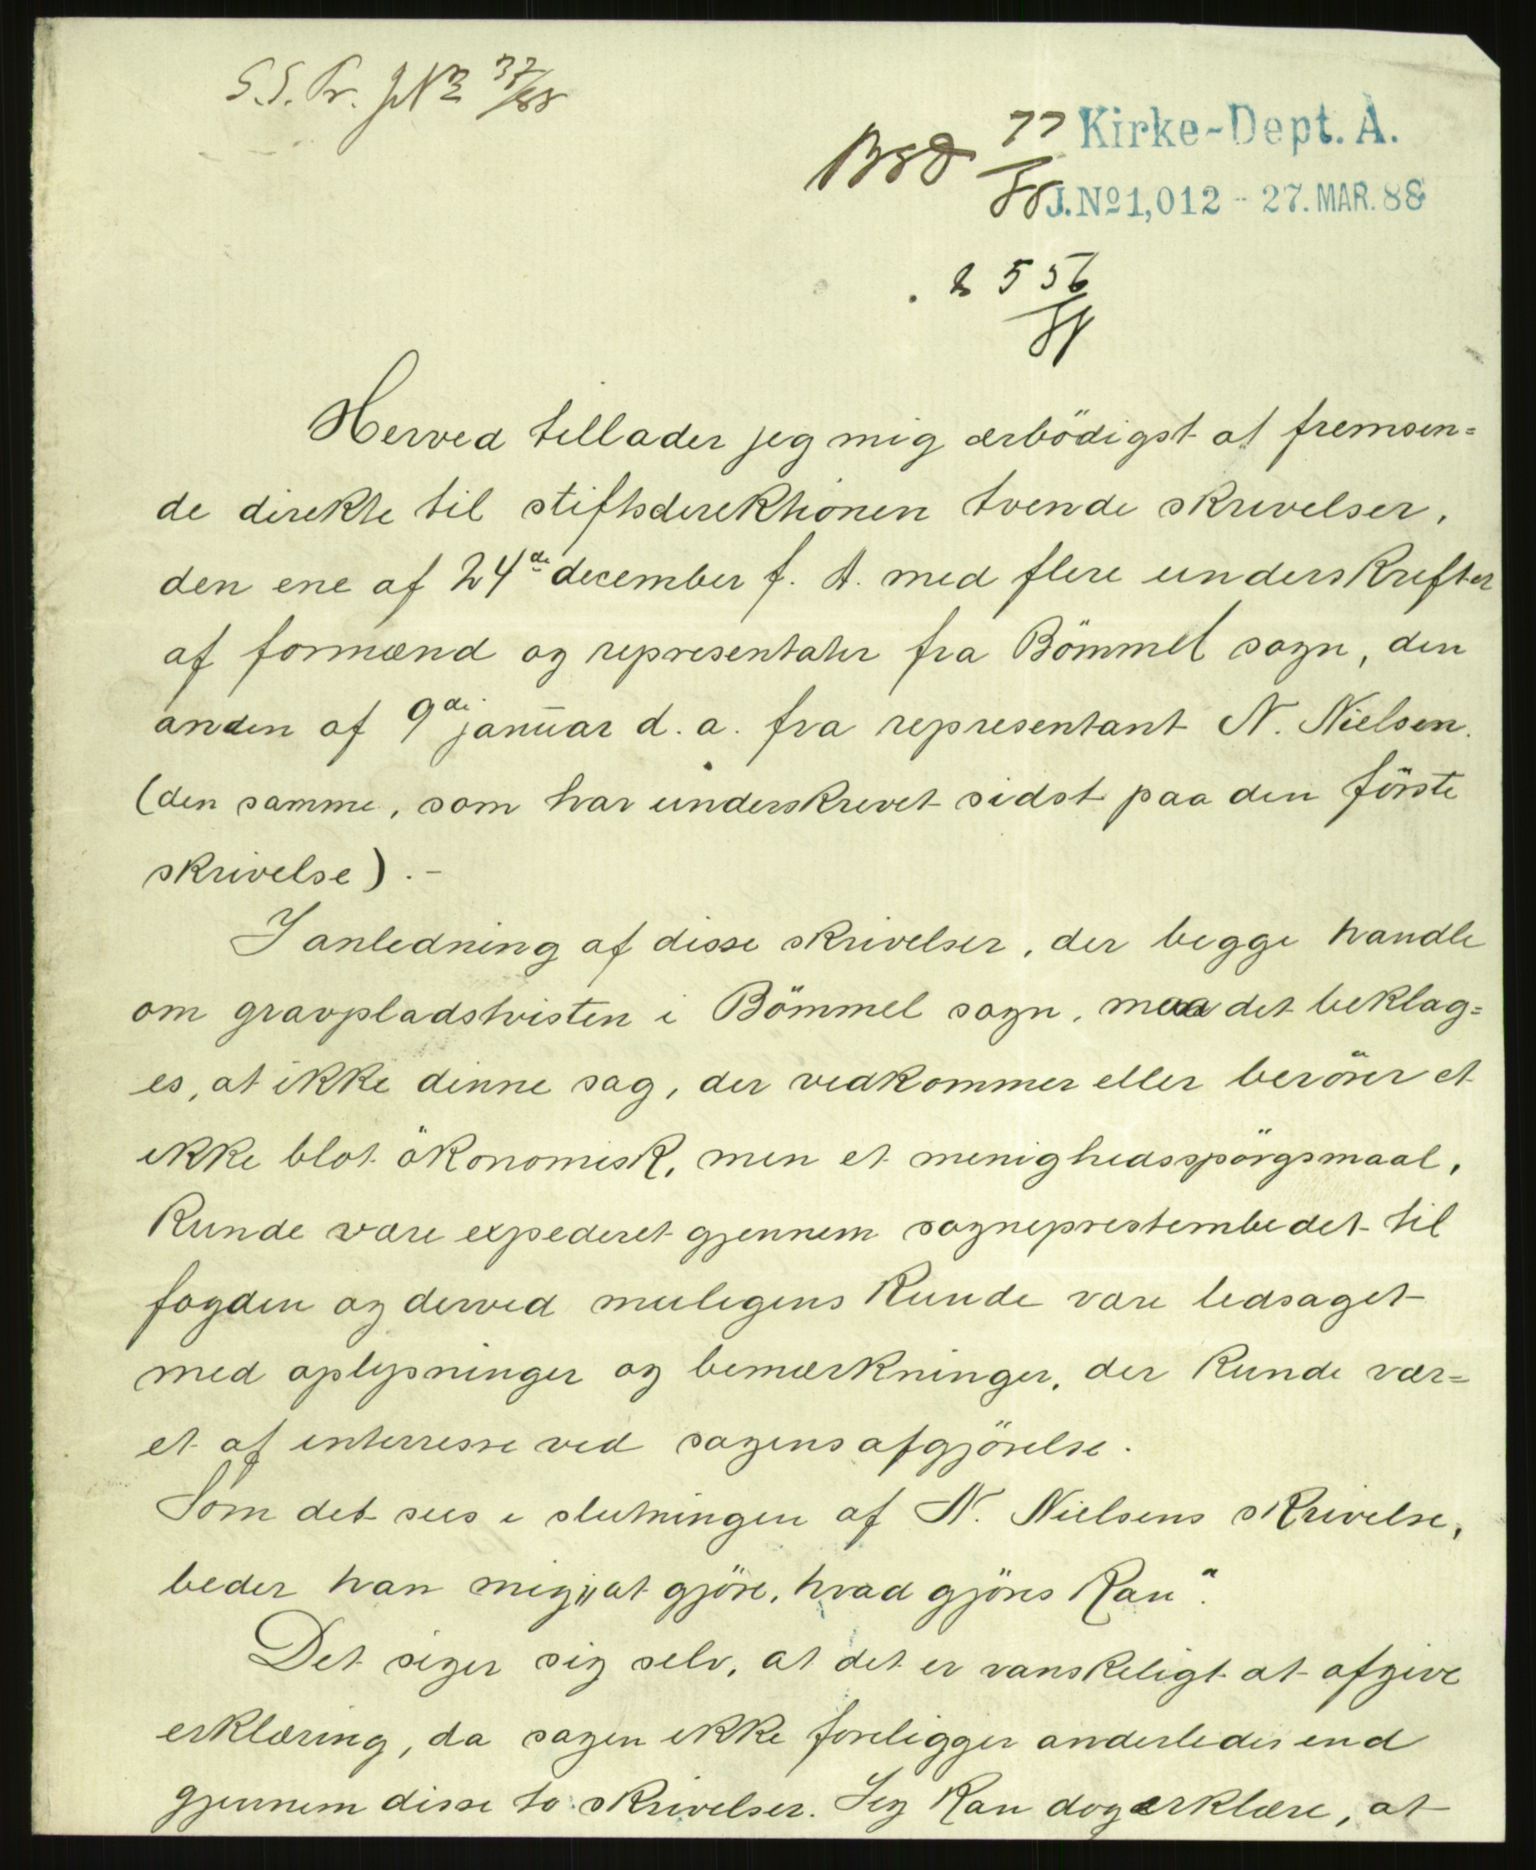 S.S. Pr. JN 37/88
BSD 77/88
Kirke-Dept. A.
J. Nº 1,012 - 27. MAR. 88
556/88
Herved tillader jeg mig ærbödigst at fremsen=
de direkte til stiftsdirektionen tvende skrivelser,
den ene af 24de december f. A. med flere underskrifter
af formænd og representater fra Bömmel sogn, den
anden af 9de januar d. a. fra representant N. Nielsen.
(den samme, som har underskrevet sidst paa den förste
skrivelse). -
I anledning af disse skrivelser, der begge handle
om gravpladstvisten i Bömmel sogn, maa det beklag=
es, at ikke dinne sag, der vedkommer eller berörer et
ikke blot ökonomisk, men et menighedsspörgsmaal,
kunde være expederet gjennem sogneprestembedet til
fogden og derved muligens kunde være ledsaget
med oplysninger og bemærkninger, der kunde vær=
et af interresse ved sagens afgjörelse.
Som det sees i slutningen af N. Nielsens skrivelse,
beder han mig „at gjöre, hvad gjöres kan".
Det siger sig selv, at det er vanskeligt at afgive
erklæring, da sagen ikke foreligger anderledes end
gjennem disse to skrivelser. Jeg kan dog erklære, at